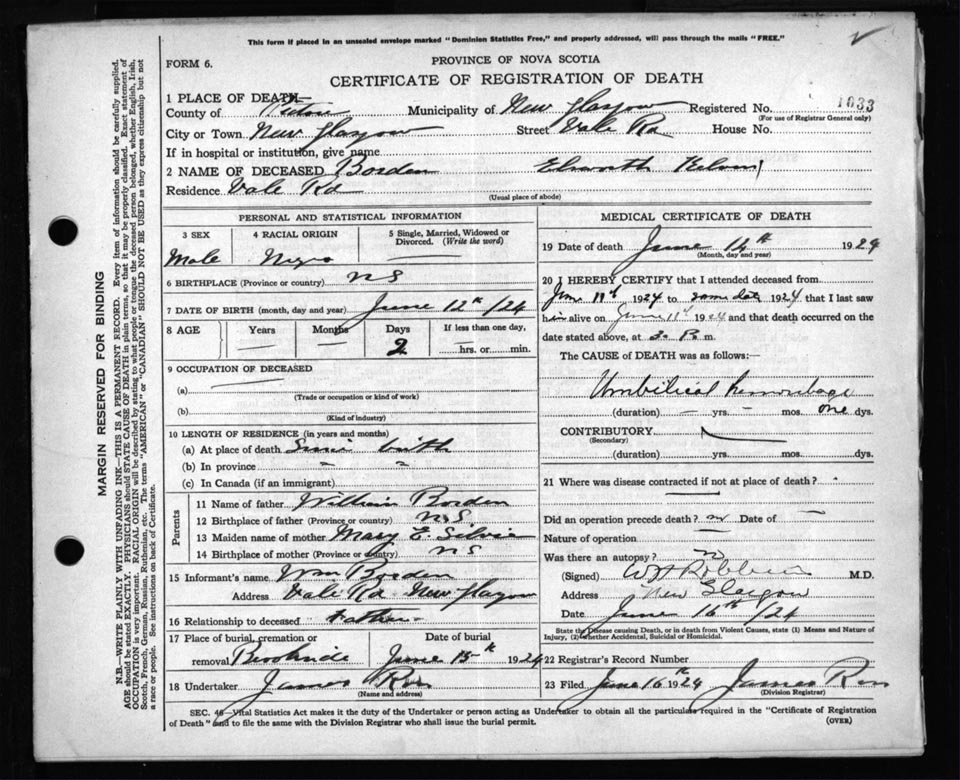 This form if placed in an unsealed envelope marked "Dominion Statistics Free," and properly addressed, will pass through the mails "FREE."
FORM 6.
PROVINCE OF NOVA SCOTIA
CERTIFICATE OF REGISTRATION OF DEATH
1 PLACE OF DEATH—
County of Pictou Municipality of New Glasgow Registered No. 1033
(For use of Registrar General only)
City or Town New Glasgow Street Vale Rd House No.
If in hospital or institution, give name
2 NAME OF DECEASED Borden
Residence Vale Rd
(Usual place of abode)
PERSONAL AND STATISTICAL INFORMATION
3 SEX 4 RACIAL ORIGIN 5 Single, Married, Widowed or
Divorced. (Write the word)
Male Negro —
6 BIRTHPLACE (Province or country) NS
7 DATE OF BIRTH (month, day and year) June 12th /24
8 AGE Years Months Days If less than one day,
— — 2 — hrs. or — min.
9 OCCUPATION OF DECEASED
(a)
(Trade or occupation or kind of work)
(b)
(Kind of industry)
10 LENGTH OF RESIDENCE (in years and months)
(a) At place of death Since birth
(b) In province " "
(c) In Canada (if an immigrant)
Parents
11 Name of father William Borden
12 Birthplace of father (Province or country) NS
13 Maiden name of mother Mary E.
14 Birthplace of mother (Province or country) NS
15 Informant's name Wm Borden
Address Vale Rd New Glasgow
16 Relationship to deceased Father
17 Place of burial, cremation or Date of burial
removal June 15th 1924
18 Undertaker James Ross
(Name and address)
MEDICAL CERTIFICATE OF DEATH
19 Date of death June 14th 1924
(Month, day and year)
20 I HEREBY CERTIFY that I attended deceased from
June 1924 to same date 1924 that I last saw
him alive on June 1924 and that death occurred on
date stated above, at 3. P. m.
The CAUSE OF DEATH was as follows:—
Umbilical hemorrhage
(duration) — yrs. — mos. one dys.
CONTRIBUTORY
(Secondary)
(duration) yrs. mos. dys.
21 Where was disease contracted if not at place of death?
Did an operation precede death? no Date of —
Nature of operation
Was there an autopsy? no
(Signed) M.D.
Address New Glasgow
Date June 16th /24
State the Disease causing Death, or in death from Violent Causes, state (1) Means and Nature of
Injury, (2) whether Accidental, Suicidal or Homicidal.
22 Registrar's Record Number
23 Filed June 16th 1924 James Ross
(Division Registrar)
SEC. 46—Vital Statistics Act makes it the duty of the Undertaker or person acting as Undertaker to obtain all the particulars required in the "Certificate of Registration
of Death" and to file the same with the Division Registrar who shall issue the burial permit.
(OVER)
MARGIN RESERVED FOR BINDING
N.B.—WRITE PLAINLY WITH UNFADING INK—THIS IS A PERMANENT RECORD. Every item of information should be carefully supplied.
AGE should be stated EXACTLY. PHYSICIANS should STATE CAUSE OF DEATH in plain terms, so that it may be properly classified. Exact statement of
OCCUPATION is very important. RACIAL ORIGIN will be described by stating to what people or tongue the deceased person belonged, whether English, Irish,
Scotch, French, German, Russian, Ruthenian, etc. The terms "AMERICAN" or "CANADIAN" SHOULD NOT BE USED as they express citizenship but not
a race or people. See instructions on back of Certificate.